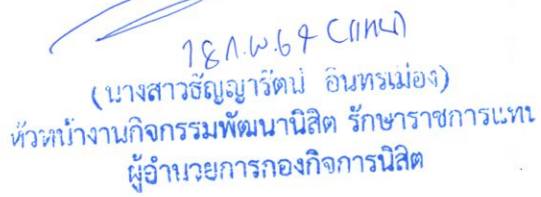 18 ก.พ. 67 (แทน)
(นางสาวธัญญารัตน์ อินทรเมือง)
หัวหน้างานกิจกรรมพัฒนานิสิต รักษาราชการแทน
ผู้อำนวยการกองกิจการนิสิต